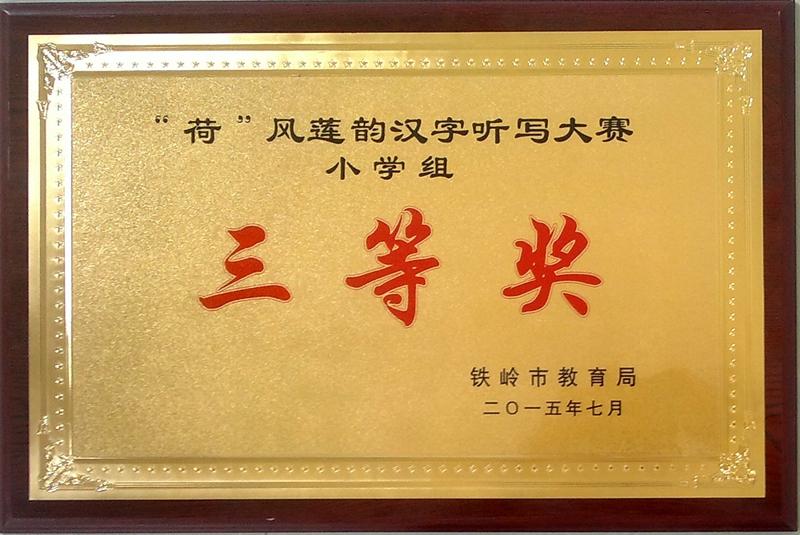 “荷”风莲韵汉字听写大赛
小学组
三等奖
铁岭市教育局
二〇一五年七月